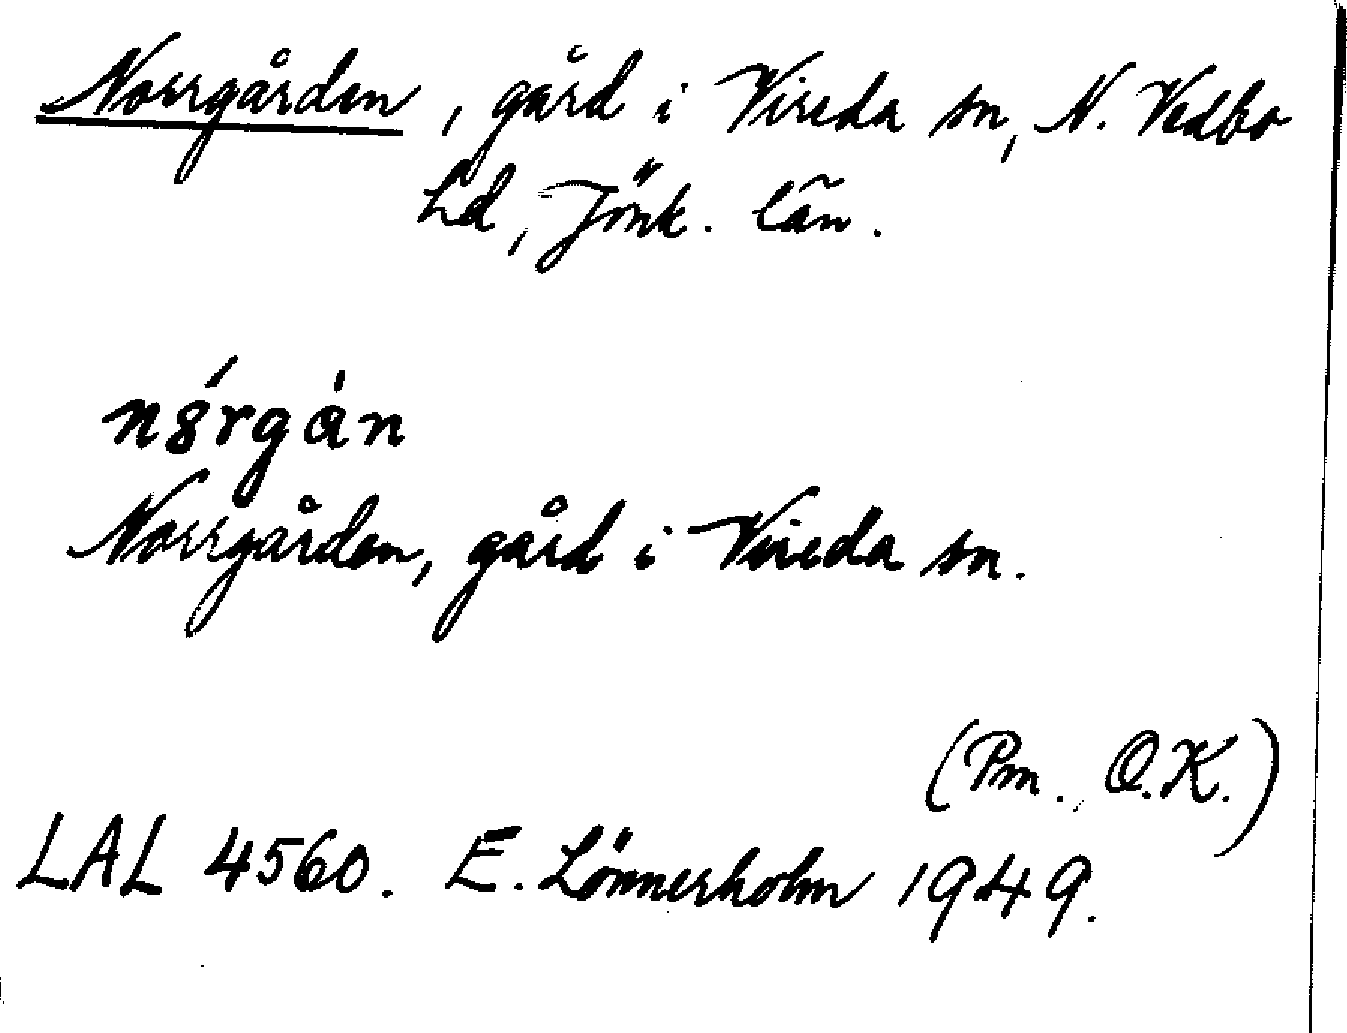 Norrgården, gård i Vireda sn, N. Vedbo
hd, Jönk. län.
Norrgården, gård i Vireda sn.
(Pm. O.K.)
LAL 4560. E. Lönnerholm 1949.